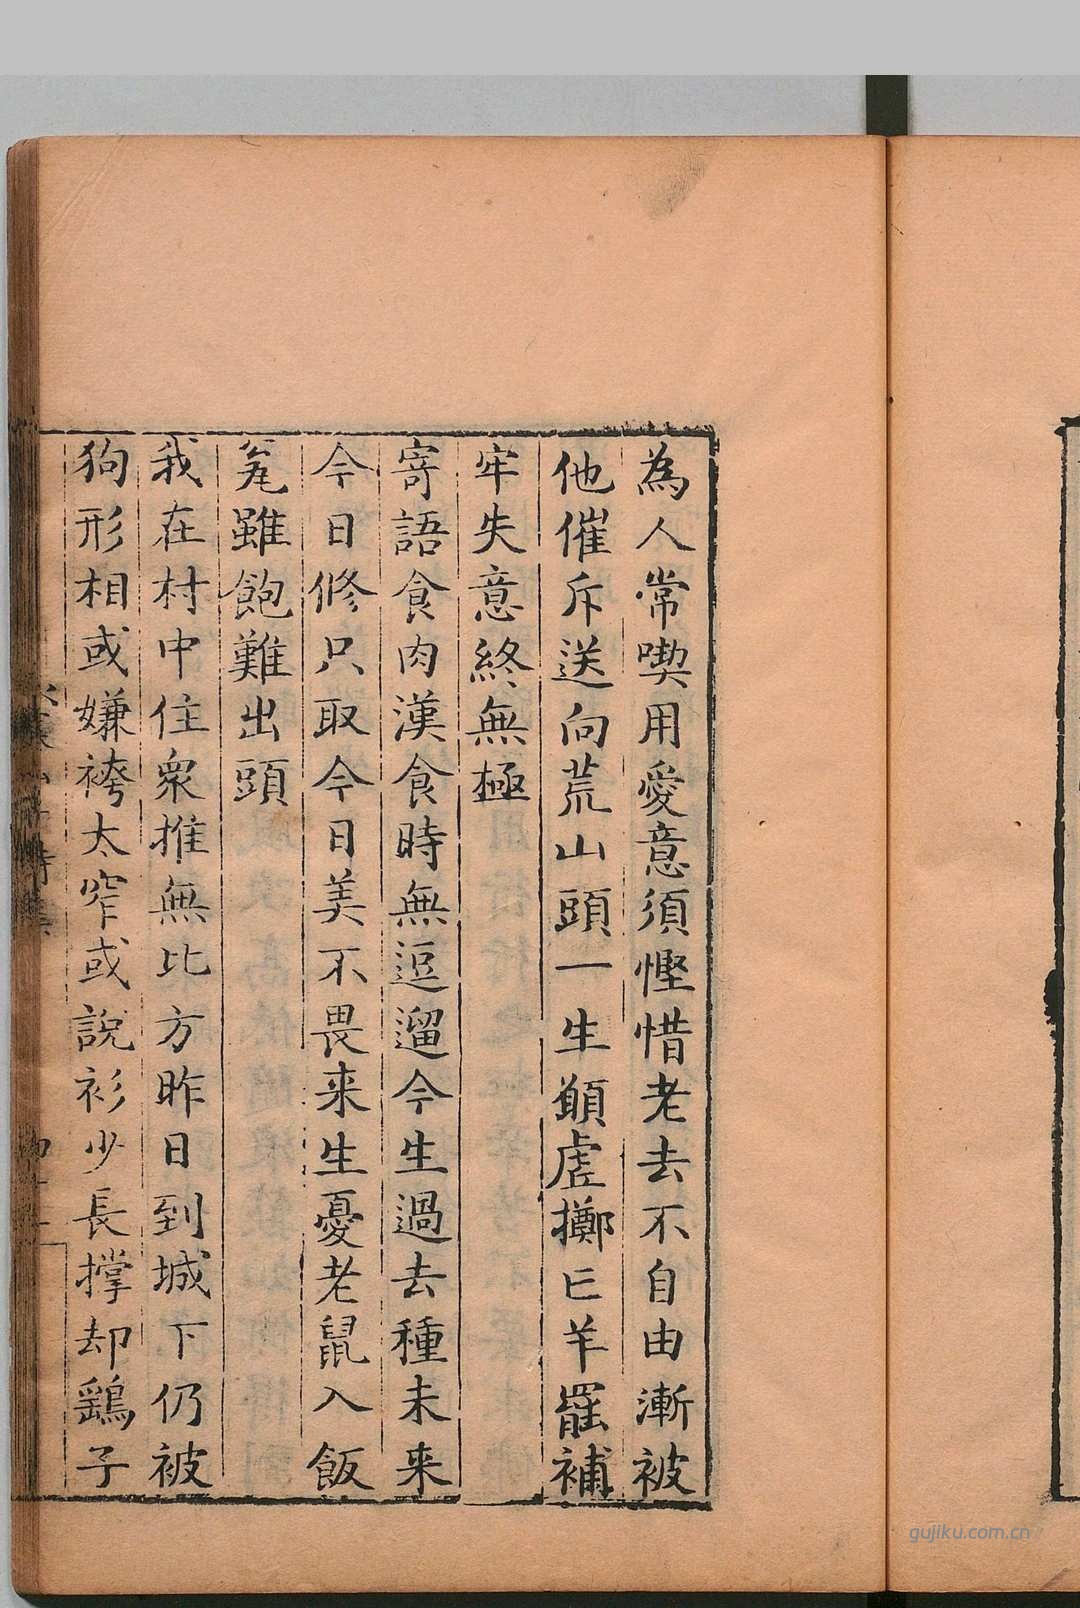 為人常喫用愛意須慳惜老去不自由漸被
他催斥送向荒山頭一生願虛擲亡羊罷補
牢失意終無極
寄語食肉漢食時無逗遛今生過去種未来
今日修只取今日美不畏来生憂老鼠入飯
瓮雖飽難出頭
我在村中住衆推無比方昨日到城下仍被
狗形相或嫌袴太窄或說衫少長撑却鷂子
gujiku.com.cn